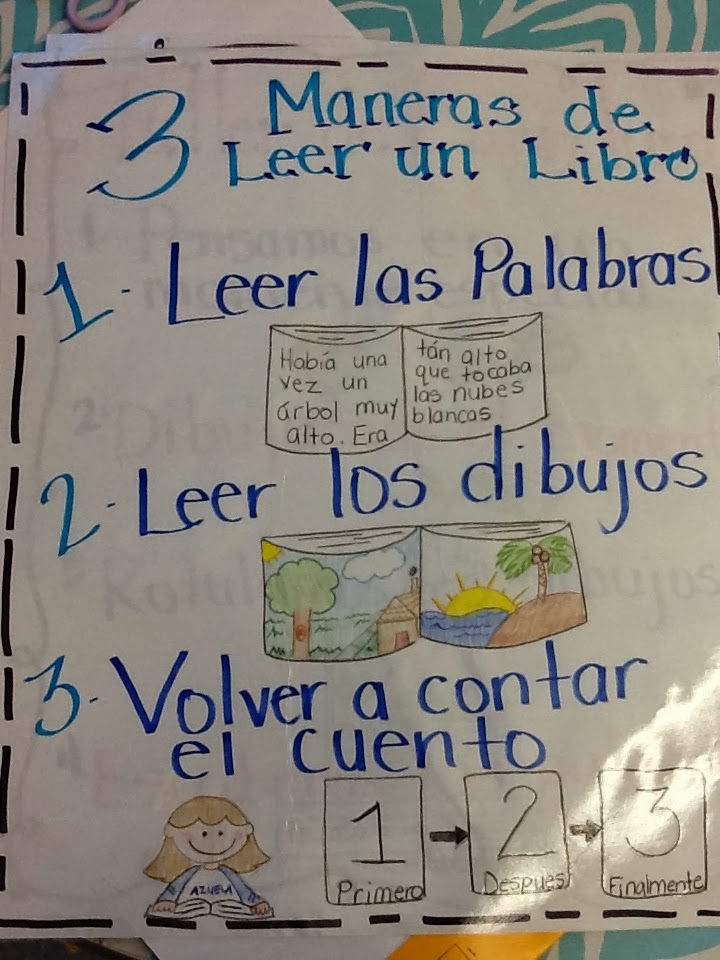 3 Maneras de
Leer un Libro
1- Leer las Palabras
Había una
vez un
árbol muy
alto. Era
tán alto
que tocaba
las nubes
blancas
2- Leer los dibujos
3- Volver a contar
el cuento
AZUELA
1
Primero
2
Despues
3
Finalmente